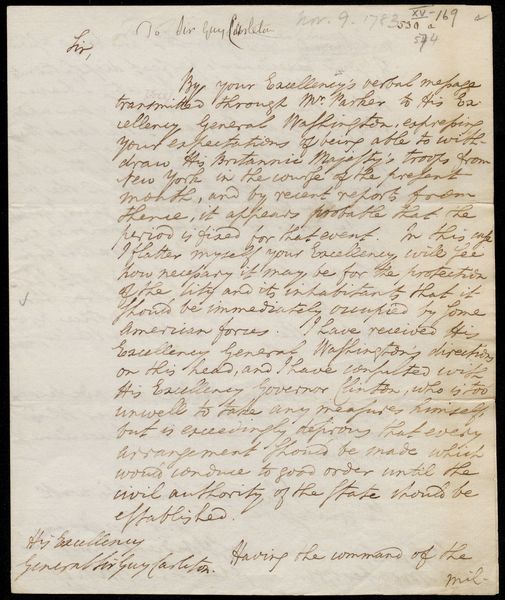 To Sir Guy Carleton
Nov. 9. 1783
XV-169
530 a
594
Sir,
By your Excellency's verbal message
transmitted through Mr. Parker to His Ex-
cellency General Washington, expressing
your expectations of being able to with-
draw His Britannic Majesty's troops from
New York in the course of the present
month, and by recent reports from
thence, it appears probable that the
period is fixed for that event. In this case
I flatter myself your Excellency will see
how necessary it may be for the protection
of the City and its inhabitants that it
should be immediately occupied by some
American forces. I have received His
Excellency General Washington's directions
on this head, and I have consulted with
His Excellency Governor Clinton, who is too
unwell to take any measures himself
but is exceedingly desirous that every
arrangement should be made which
would conduce to good order until the
civil authority of the State should be
established.
His Excellency
General Sir Guy Carleton.
Having the command of the
mil-